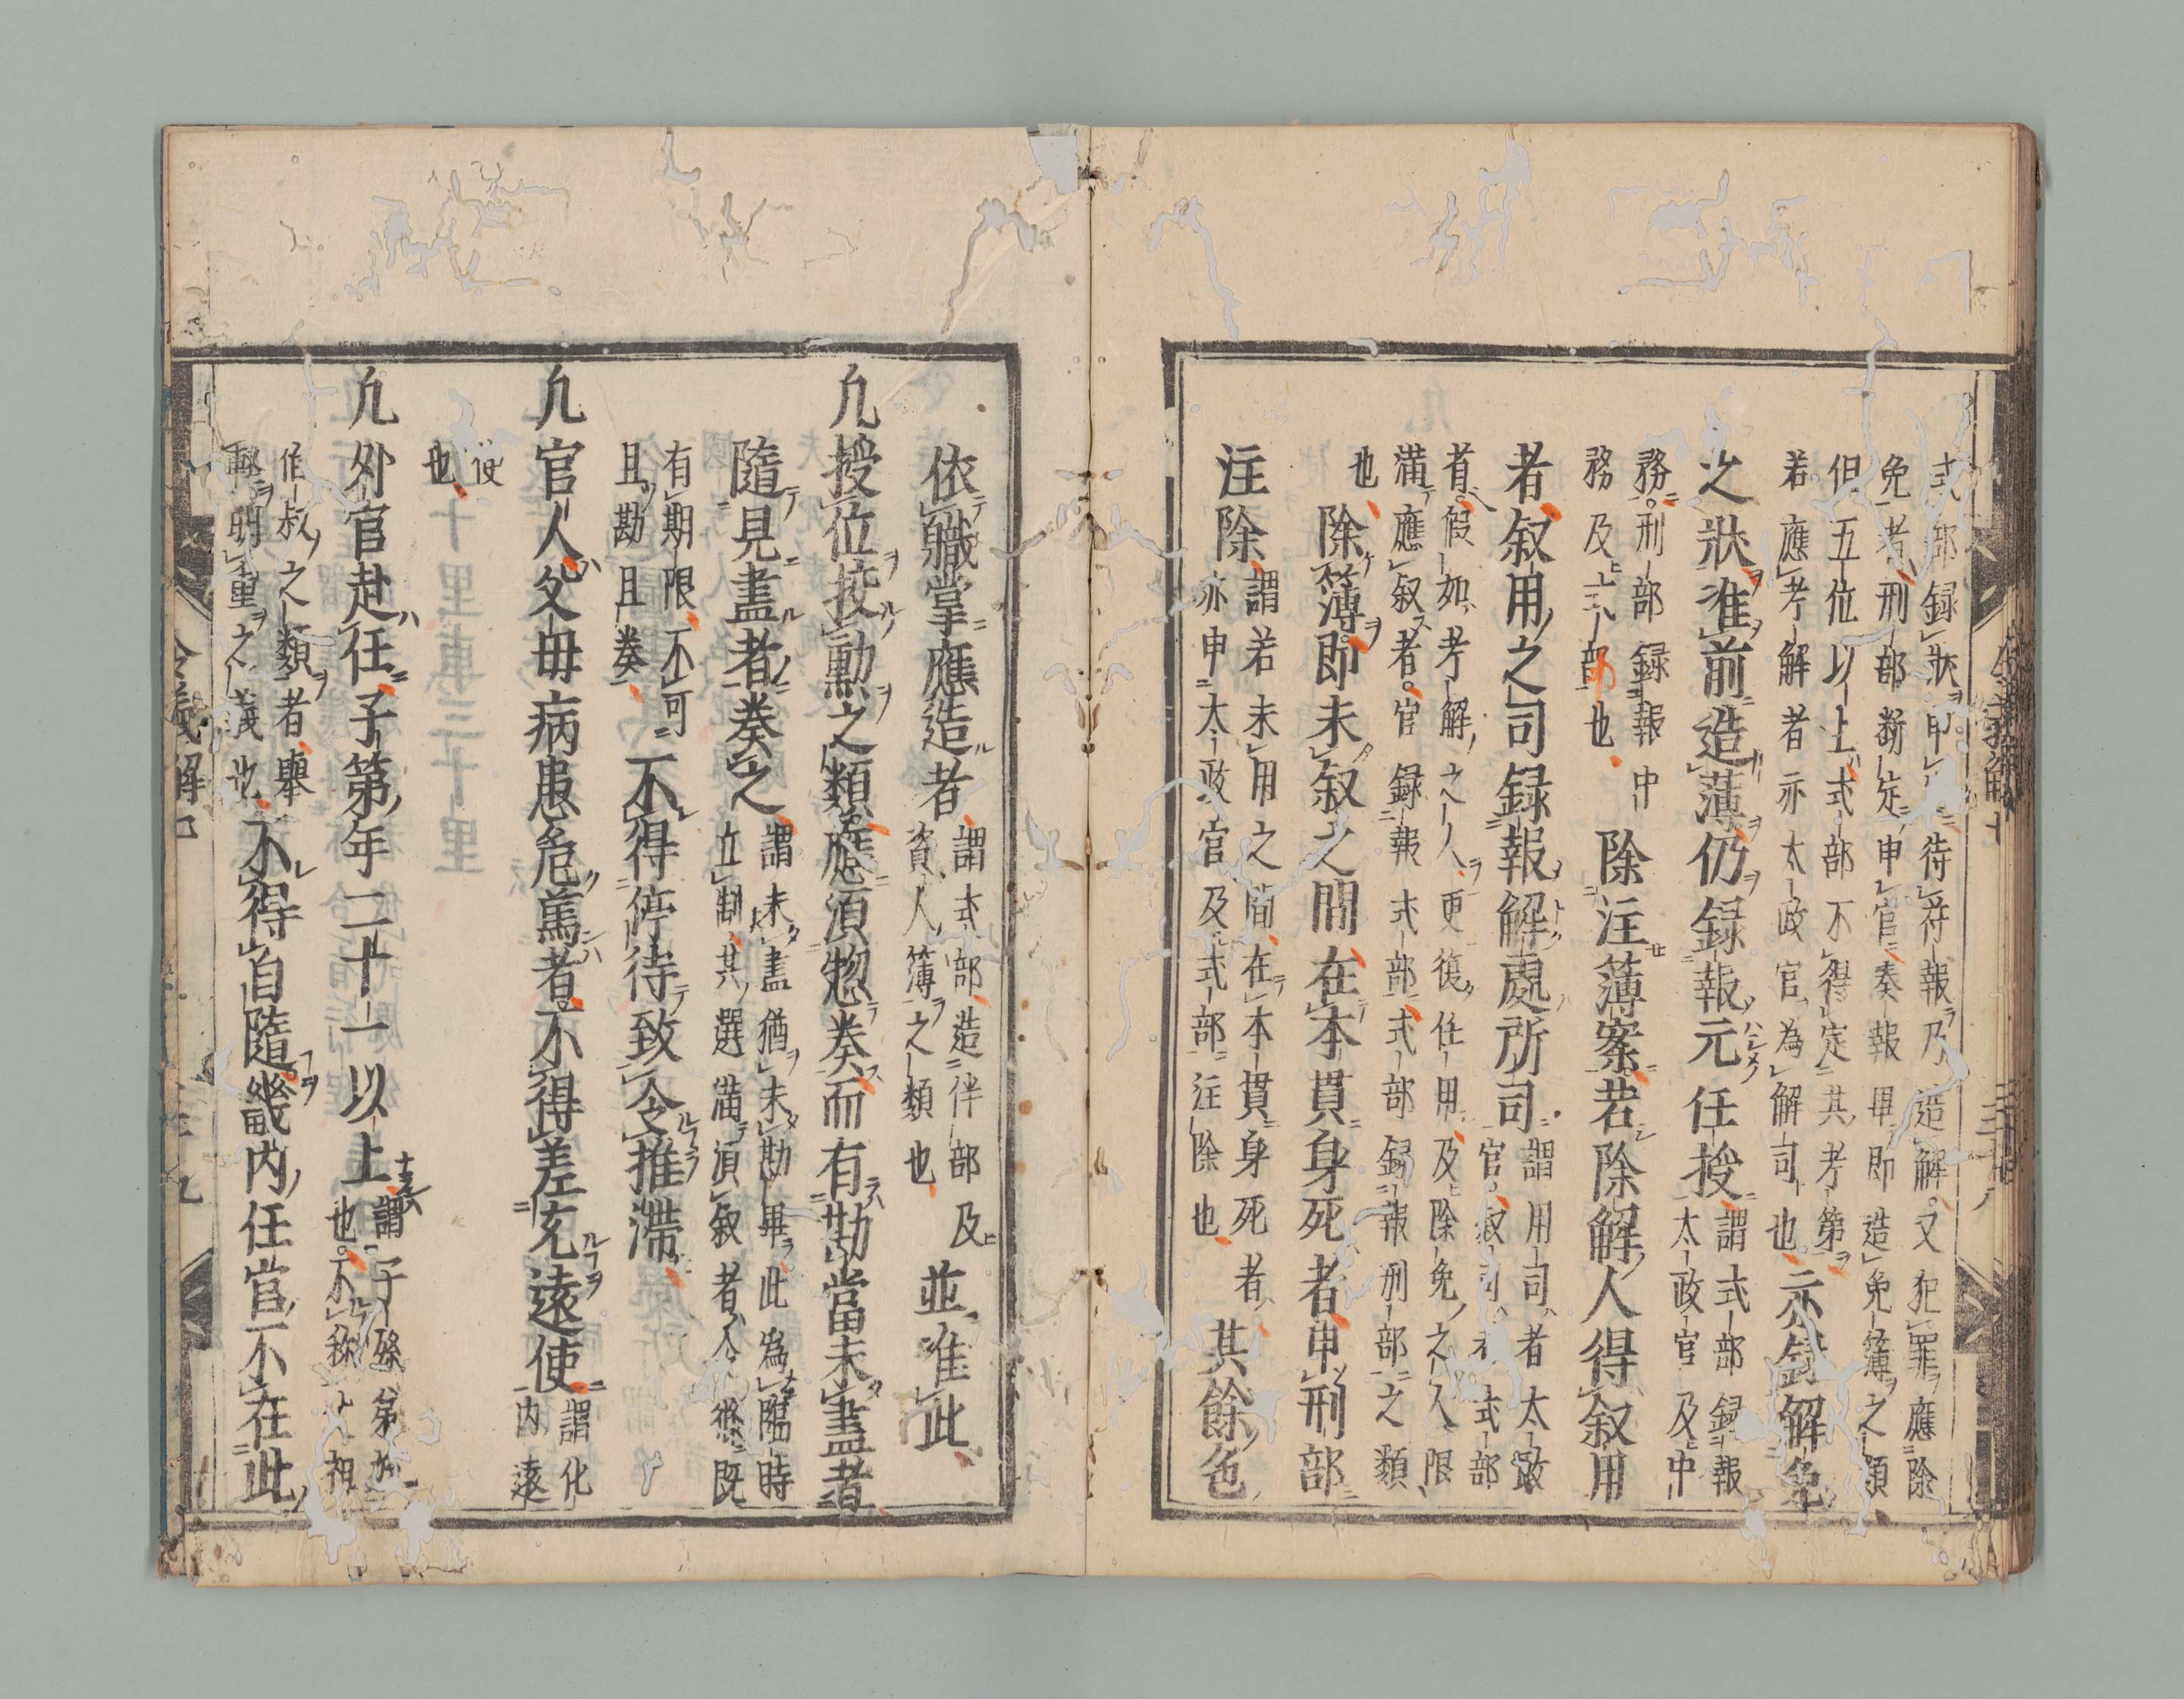 式部録狀申官待符報乃造解又犯罪應除
免者刑部断定申官奏報畢即造免簿之類
但五位以上式部不得定其考第
若應考解者亦太政官為解司也亦録解免
之狀准前造薄仍録報元任授謂式部録報
太政官及中
務刑部録報中
務及式部也除注薄案若除解人得叙用
者叙用之司録報解處所司謂用司者太政
官叙司者式部
者假如考解之人更復任用及除免之人限
滿應叙者官録報式部式部録報刑部之類
也除簿即未叙之間在本貫身死者申刑部
注除謂若未用之間在本貫身死者
亦申太政官及式部注除也其餘色
依職掌應造者謂式部造伴部及
資人簿之類也並准此
凡授位授勳之類應須惣奏而有勘當未盡者
隨見盡者奏之謂未盡猶未勘畢此為臨時
立制其選滿須叙者人㥡既
有期限不可
且勘且奏不得停待致令推滯
凡官人父毋病患危篤者不得差充遠使謂化
内遠
使
也
凡外官赴任子第年二十一以上謂子孫弟姪
也不稱祖
伯叔之類者舉
輕明重之義也不得自隨畿内任官不在此
令義解